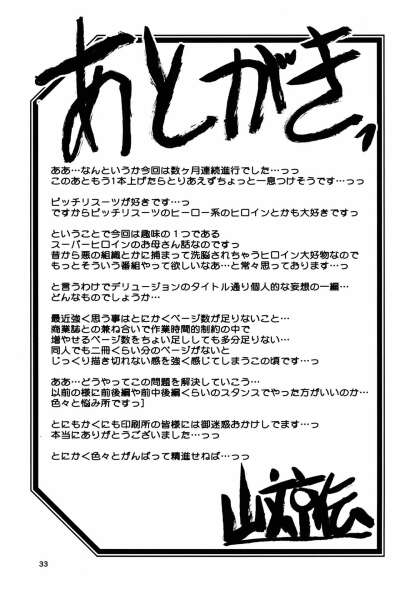 あとがき
ああ…なんというか今回は数ヶ月連続進行でした…っっ
このあともう1本上げたらとりあえずちょっと一息つけそうです…っっ
ピッチリスーツが好きです…っ
ですからピッチリスーツのヒーロー系のヒロインとかも大好きですっ
ということで今回は趣味の1つである
スーパーヒロインのお母さん話なのですっ
昔から悪の組織とかに捕まって洗脳されちゃうヒロイン大好物なので
もっとそういう番組やって欲しいなあ…と常々思っております…っ
と言うわけでデリュージョンのタイトル通り個人的な妄想の一編…
どんなものでしょうか…
最近強く思う事はとにかくページ数が足りないこと…
商業誌との兼ね合いで作業時間的制約の中で
増やせるページ数をちょい足ししても多分足りない…
同人でも二冊くらい分のページがないと
じっくり描き切れない感を強く感じてしまうこの頃です…っ
ああ…どうやってこの問題を解決していこう…
以前の様に前後編や前中後編くらいのスタンスでやった方がいいのか…
色々と悩み所ですっ]
ともにかくにも印刷所の皆様には御迷惑おかけしてます…っ
本当にありがとうございました…っっ
とにかく色々とがんばって精進せねば…っっ
山文京伝
33